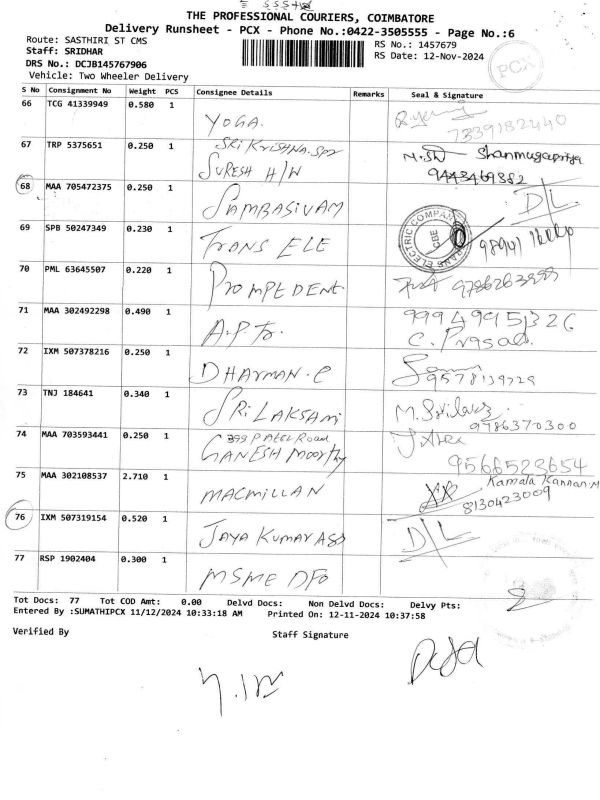 THE PROFESSIONAL COURIERS, COIMBATORE
Delivery Runsheet - PCX - Phone No.:0422-3505555 - Page No.:6
Route: SASTHIRI ST CMS
RS No.: 1457679
Staff: SRIDHAR
RS Date: 12-Nov-2024
DRS No.: DCJB145767906
PCX
Vehicle: Two Wheeler Delivery
S No Consignment No Weight PCS Consignee Details Remarks Seal & Signature
66 TCG 41339949 0.580 1 YOGA. 7339182440
67 TRP 5375651 0.250 1 SRI KRISHNA. SURESH H/W Shanmugapriya
9443469382
68 MAA 705472375 0.250 1 SAMBASIVAM D/L
69 SPB 50247349 0.230 1 TRANS ELE
70 PML 63645507 0.220 1 PROMPE DENT
71 MAA 302492298 0.490 1 A.P Tr. 9994995326
C. Prasad.
72 IXM 507378216 0.250 1 DHARMAN. C 9578139729
73 TNJ 184641 0.340 1 SRI LAKSAMI 9786370300
74 MAA 703593441 0.250 1 399 PATEL Road
GANESH MOORTHY
9566523654
75 MAA 302108537 2.710 1 MACMILLAN Kamala Kannan M
8130423009
76 IXM 507319154 0.520 1 JAYA KUMAR ASS D/L
77 RSP 1902404 0.300 1 MSME DFO
Tot Docs: 77 Tot COD Amt: 0.00 Delvd Docs: Non Delvd Docs: Delvy Pts:
Entered By :SUMATHIPCX 11/12/2024 10:33:18 AM Printed On: 12-11-2024 10:37:58
Verified By
Staff Signature